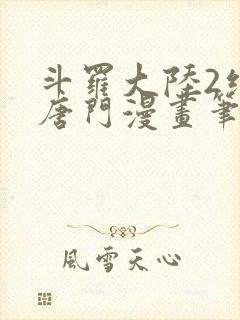 斗羅大陸2絕
唐門漫畫筆
風雪天心